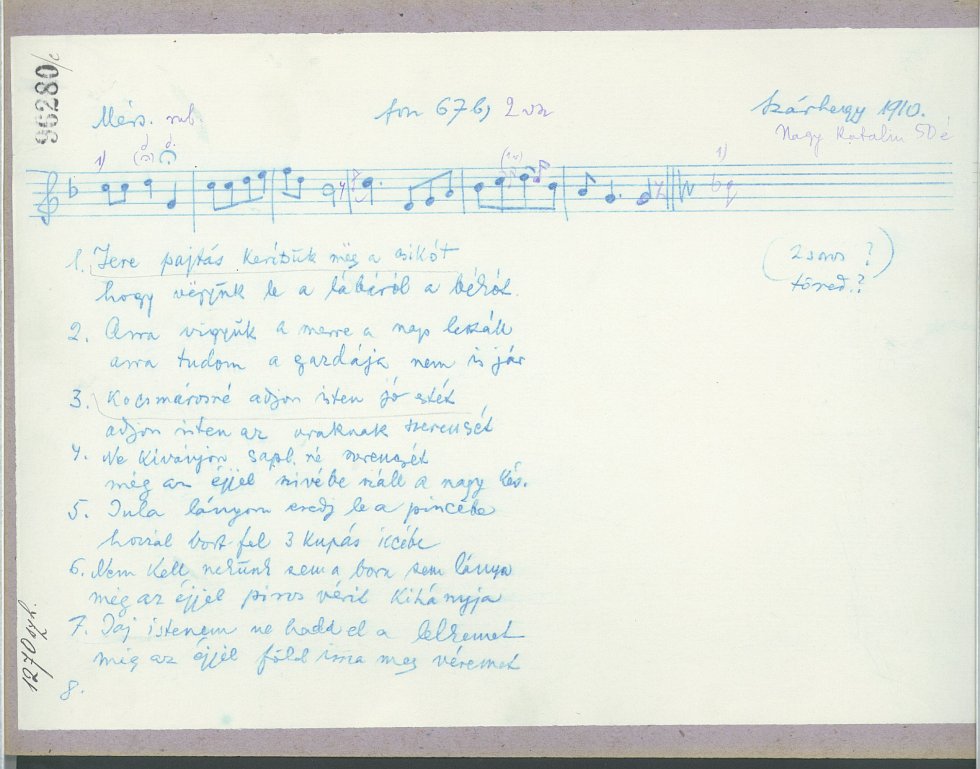 96280/c
Mérs. rub
fon 67 b, 2 vsz
Szárhegy 1910.
Nagy Katalin 50 é
1)
1)
1. Jere pajtás kerítsük még a csikót
hogy végyük le a lábáról a békót.
(2 soros ?)
töred.?
2. Arra vigyük a merre a nap leszáll
arra tudom a gazdája nem is jár
3. Kocsmárosné adjon isten jó estét
adjon isten az uraknak szerencsét
4. Ne kívánjon sapl. né szerencsét
még az éjjel szivébe száll a nagy kés.
5. Jula lányom eredj le a pincébe
hozzál bort fel 3 kupás iccébe
6. Nem kell nekünk sem a bora sem lánya
még az éjjel piros vérit kihányja
7. Jaj istenem ne hadd el a lelkemet
még az éjjel föld issa meg véremet
8.